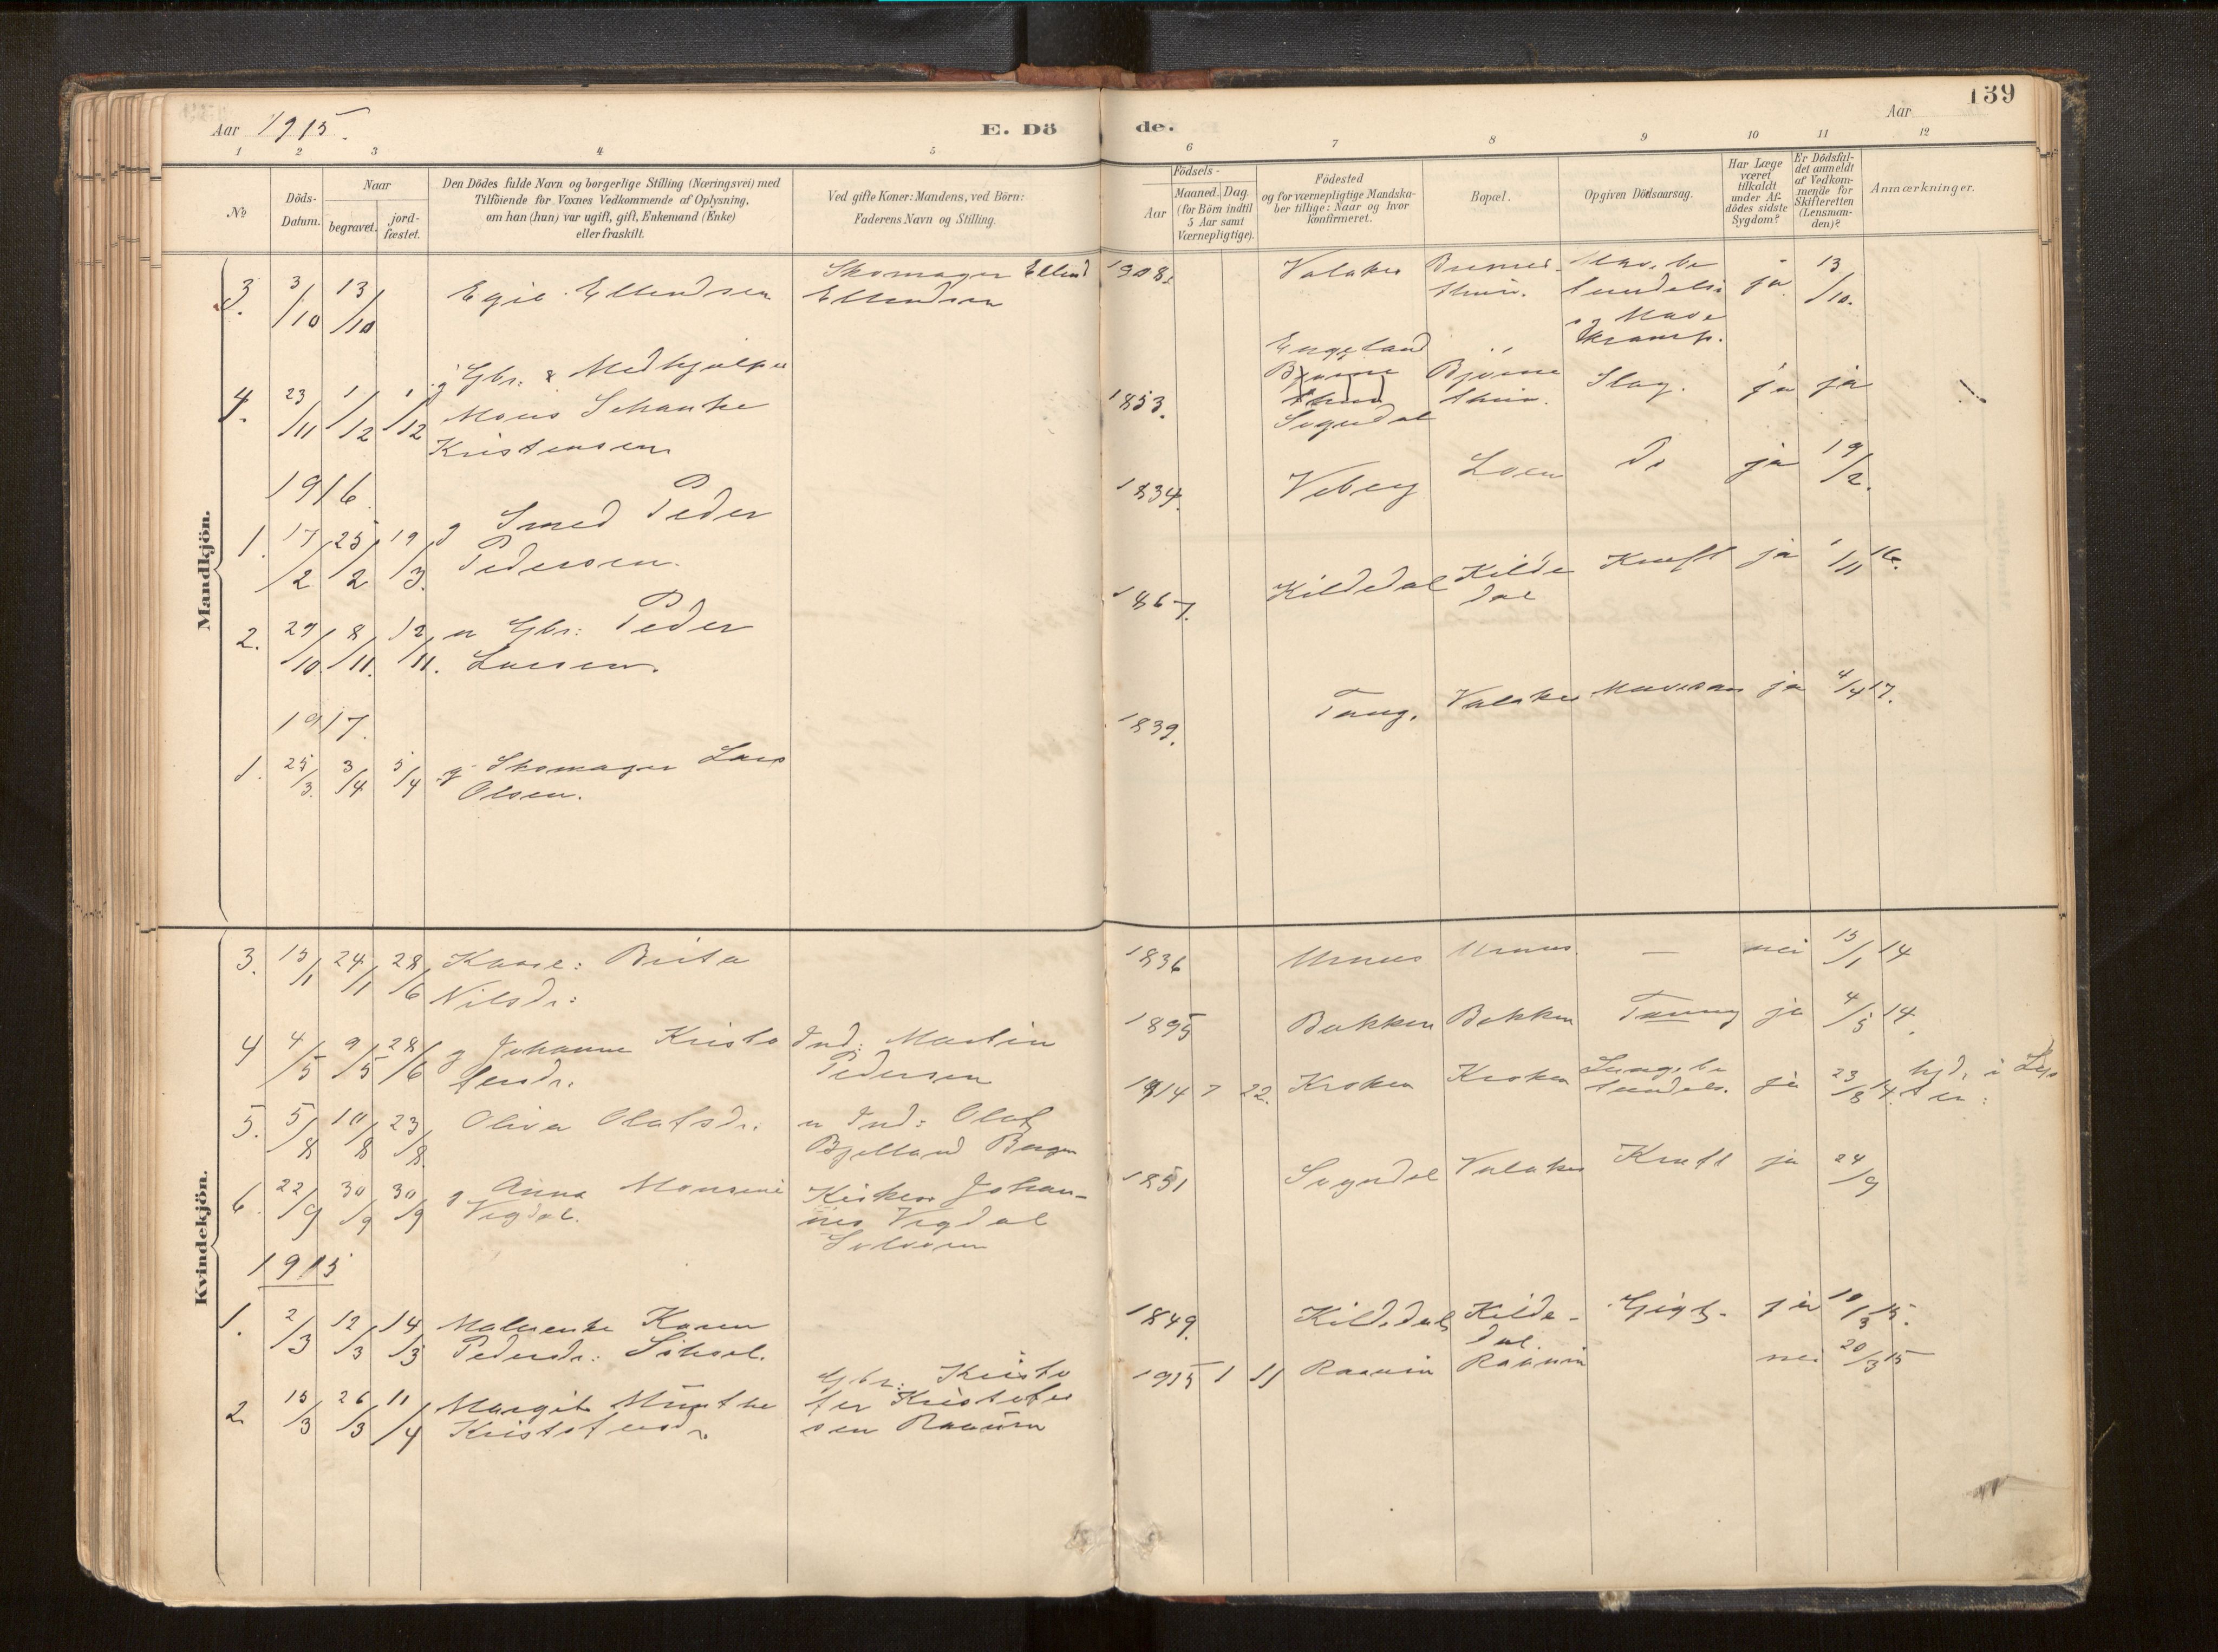 139
Aar 1915.
E. Dö
de.
Aar
1 2 3 4 5
6 7 8 9 10 11 12
No
Döds-
Datum.
Naar
begravet.
jord-
fæstet.
Den Dödes fulde Navn og borgerlige Stilling (Næringsvei) med
Tilföiende for Voxnes Vedkommende af Oplysning,
om han (hun) var ugift, gift, Enkemand (Enke)
eller fraskilt.
Ved gifte Koner: Mandens, ved Börn:
Faderens Navn og Stilling.
Födsels-
Aar
Maaned. Dag.
(for Börn indtil
5 Aar samt
Værnepligtige).
Födested
og for værnepligtige Mandska-
ber tillige: Naar og hvor
konfirmeret.
Bopæl.
Opgiven Dödsaarsag.
Har Læge
været
tilkaldt
under Af-
dödes sidste
Sygdom?
Er Dödsfal-
det anmeldt
af Vedkom-
mende for
Skifteretten
(Lensman-
den)?
Anmærkninger.
Mandkjön.
3. 3/10 13/10 Egil Ellendsen
Skomager Ellend
Ellendsen
1908. ja 13/10.
4. 23/11 1/12 1/12 g Gbr: & Medhjælper
Mons Schanke
Kristensen
1853. Engeland
Sogndal
Slag. ja ja
1916.
1. 17/2 25/2 19/3 g Smed Peder
Pedersen.
1834. Veberg Loen Do ja 19/2.
2. 29/10. 8/11. 12/11. u Gbr: Peder
Larsen.
1867. Kildedal Kilde
dal
Kræft ja 1/11 16.
1917.
1. 25/3. 3/4 5/4 g Skomager Lars
Olsen.
1839. Tang. ja 4/4 17.
Kvindekjön.
3. 15/1 24/1 28/6 Kaare: Brita
Nilsdr:
1836 Urnes Urnes. — nei 15/1 14
4 4/5 9/5 28/6 g Johanne Kristo
fersdr.
Ind: Martin
Pedersen
1895 Bakken Bakken Tæring ja 4/5 14.
5. 5/8 10/8 23/8. Oliva Olafsdr.
u Ind: Olaf
Bjelland Bergen
1914 7 22. Kroken Kroken Lungebe
tændels. ja 23/8 14. hjd. i Lys
ter:
6. 22/9 30/9 30/9 g Anna Monsine
Vigdal.
Kirkes. Johan-
nes Vigdal
Solvorn
1851 Sogndal Kræft ja 24/9
1915
1. 2/3 12/3 14/3 Karen
Pedersdr:
1849. Kildedal Kilde-
dal
Gigt. ja 10/3 15.
2 15/3 26/3 11/4 Margit Munthe
Kristofersdr.
Gbr: Kristo
fer Kristofer
sen Raaum
1915 1 11 Raaum Raaum nei 20/3 15